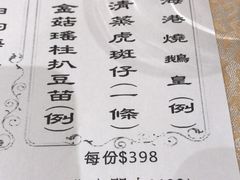 海港燒鵝皇 例
清蒸虎斑仔(一條)
金菇瑤柱扒豆苗(例)
每份$398